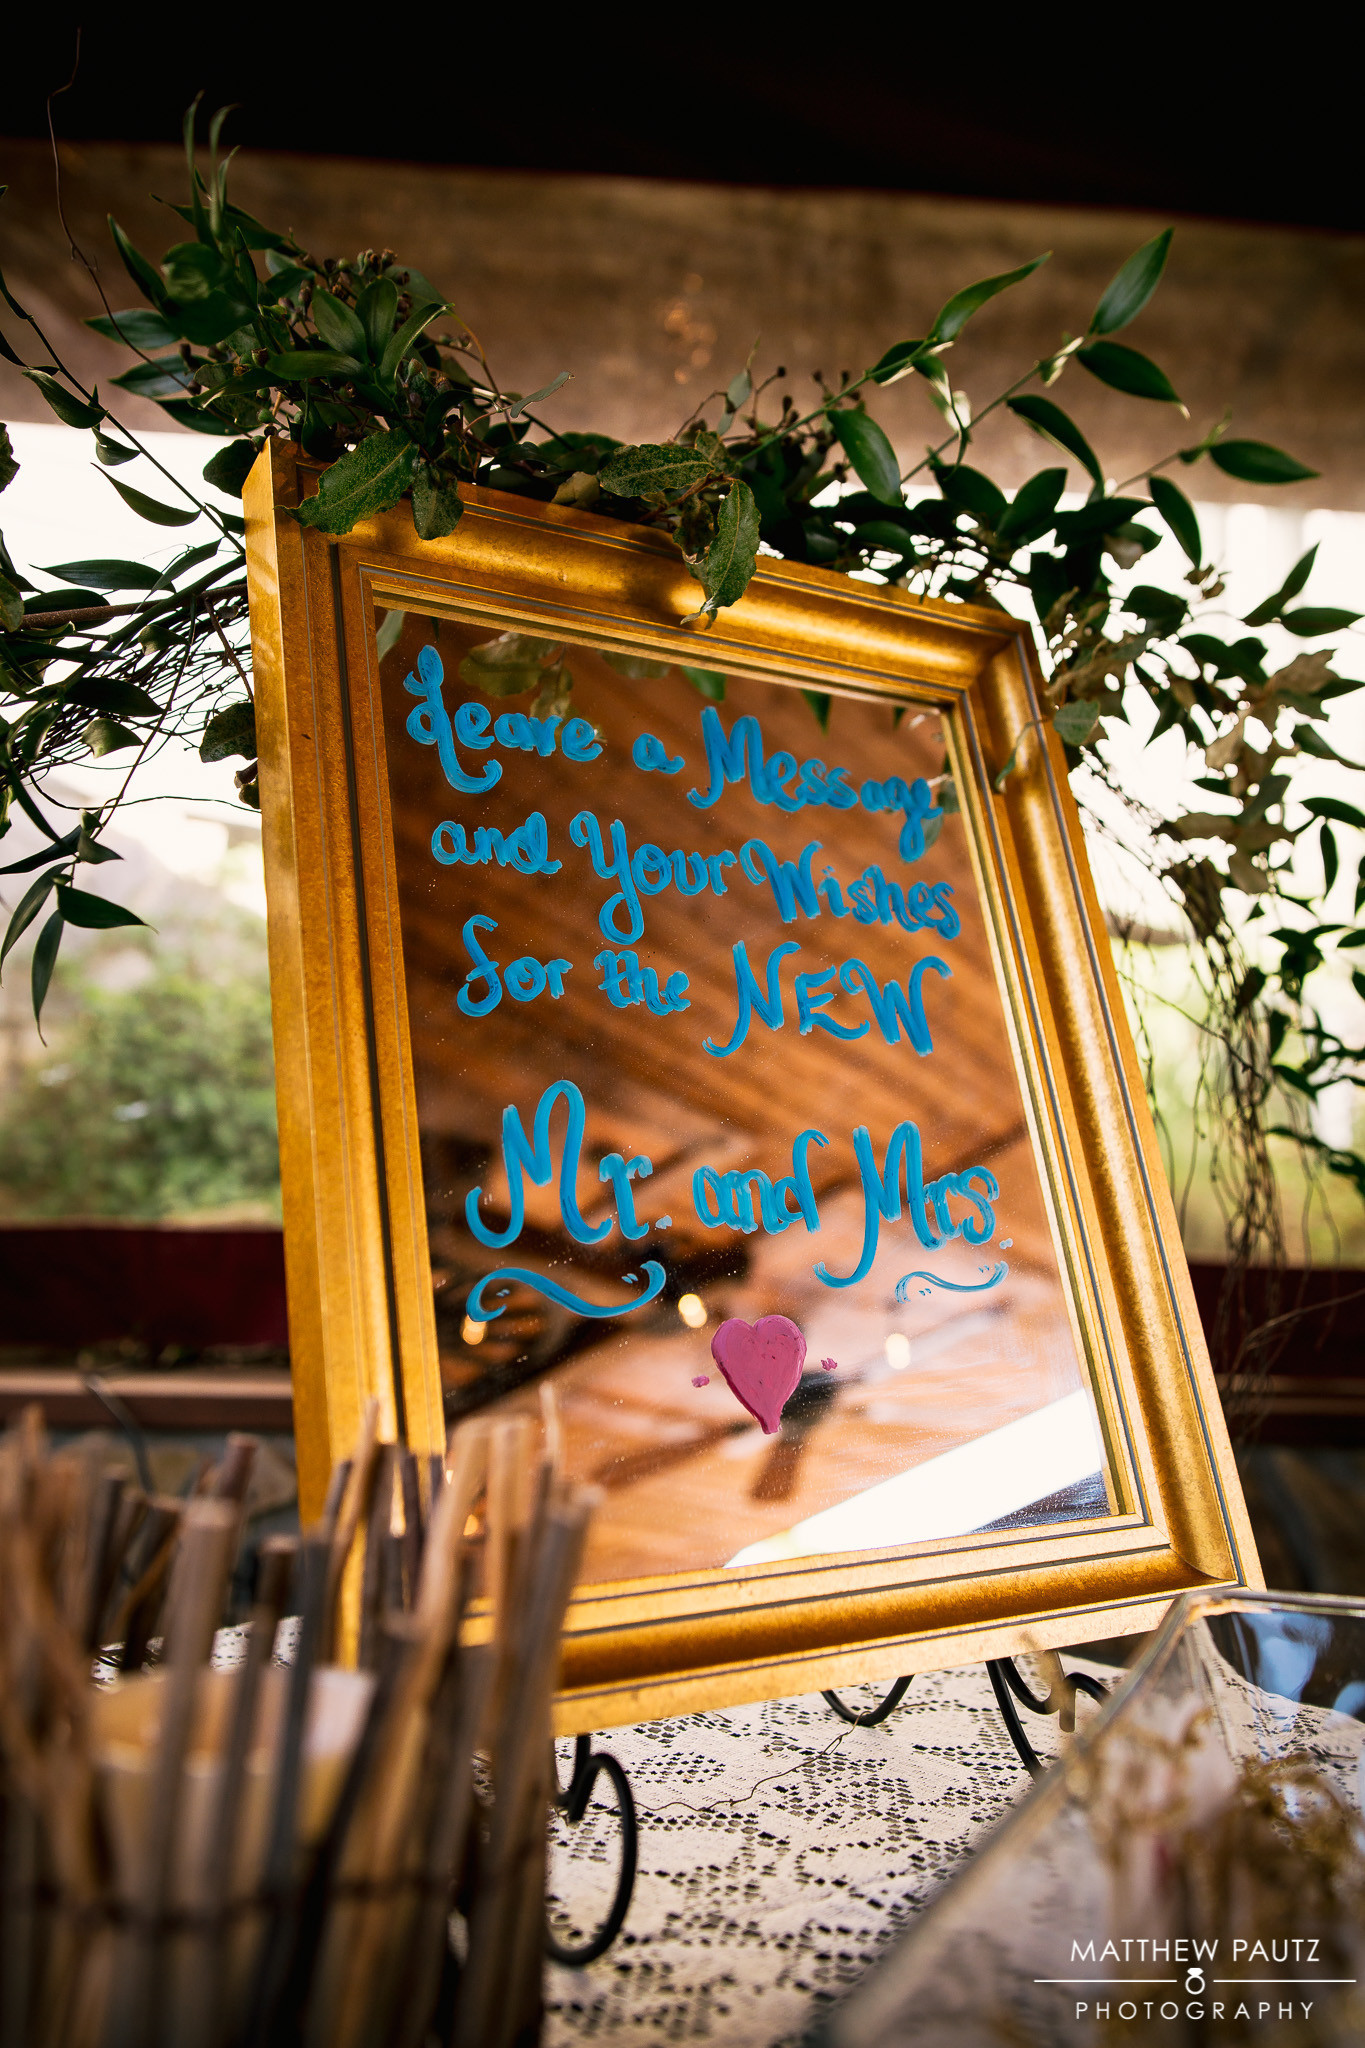 Leave a Message
and Your Wishes
for the NEW
Mr. and Mrs.
MATTHEW PAUTZ
PHOTOGRAPHY